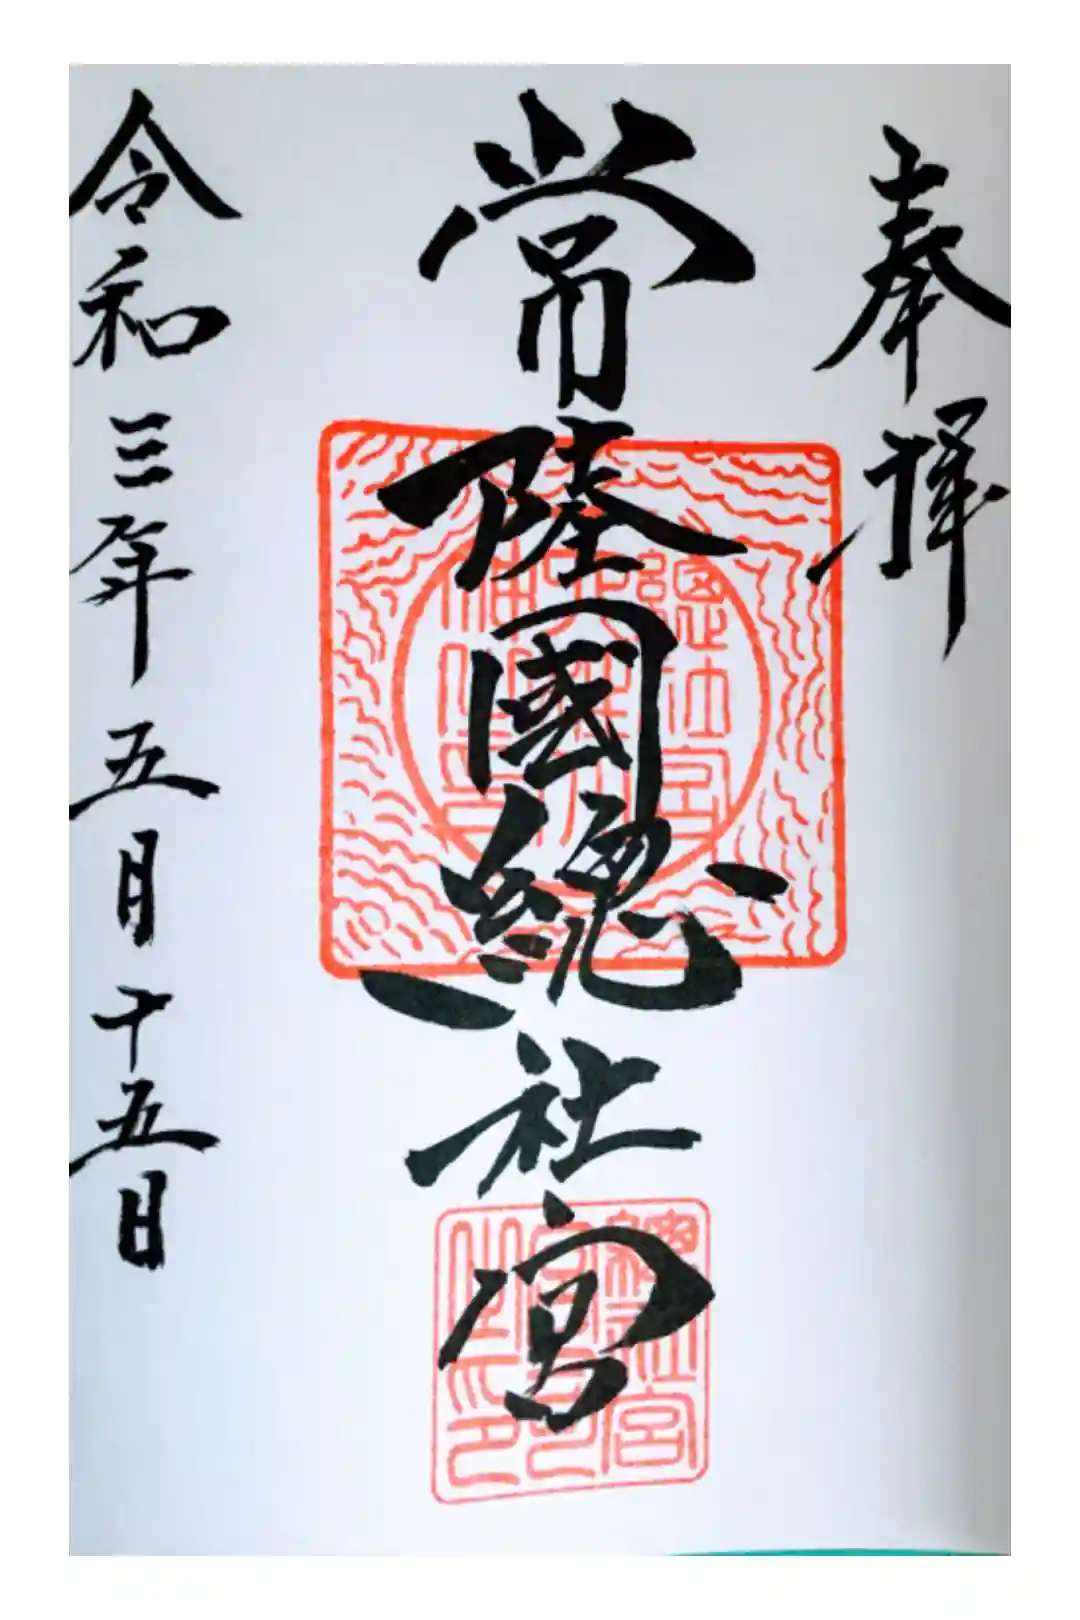 奉拝
常陸國總社宮
令和三年五月十五日
總社宮